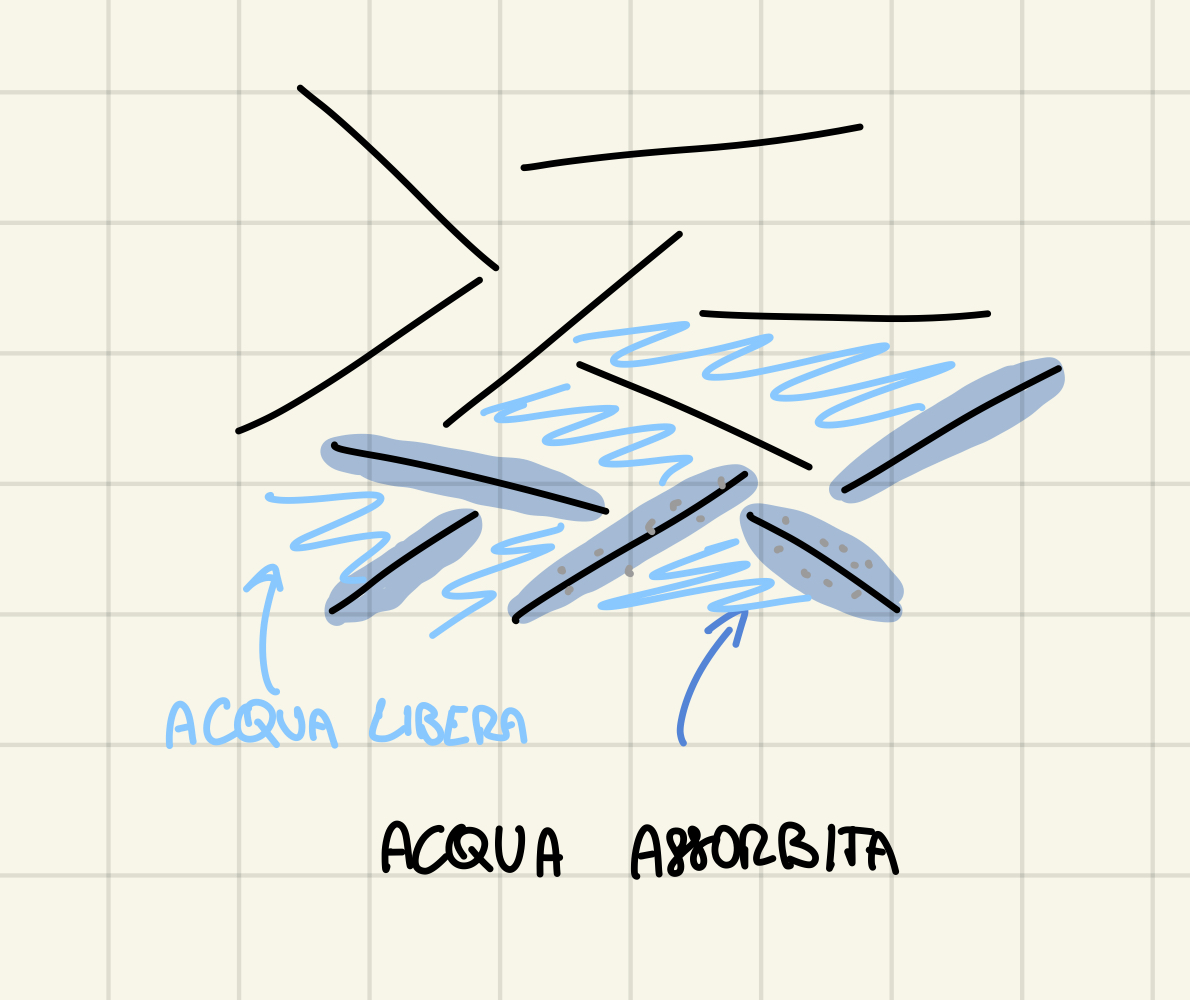 ACQUA LIBERA
ACQUA ASSORBITA